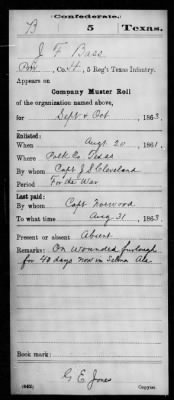 Confederate.
B 5 Texas.
J F Bass
Pvt, Co. H, 5 Reg't Texas Infantry.
Appears on
Company Muster Roll
of the organization named above,
for Sept & Oct, 1863.
Enlisted:
When Augt 20, 1861.
Where Polk Co Texas
By whom Capt J S Cleveland
Period For the War
Last paid:
By whom Capt Norwood
To what time Aug 31, 1863.
Present or absent Absent
Remarks: On wounded furlough
for 40 days now in Selma Ala.
Book mark:
G. E. Jones
(642) Copyist.